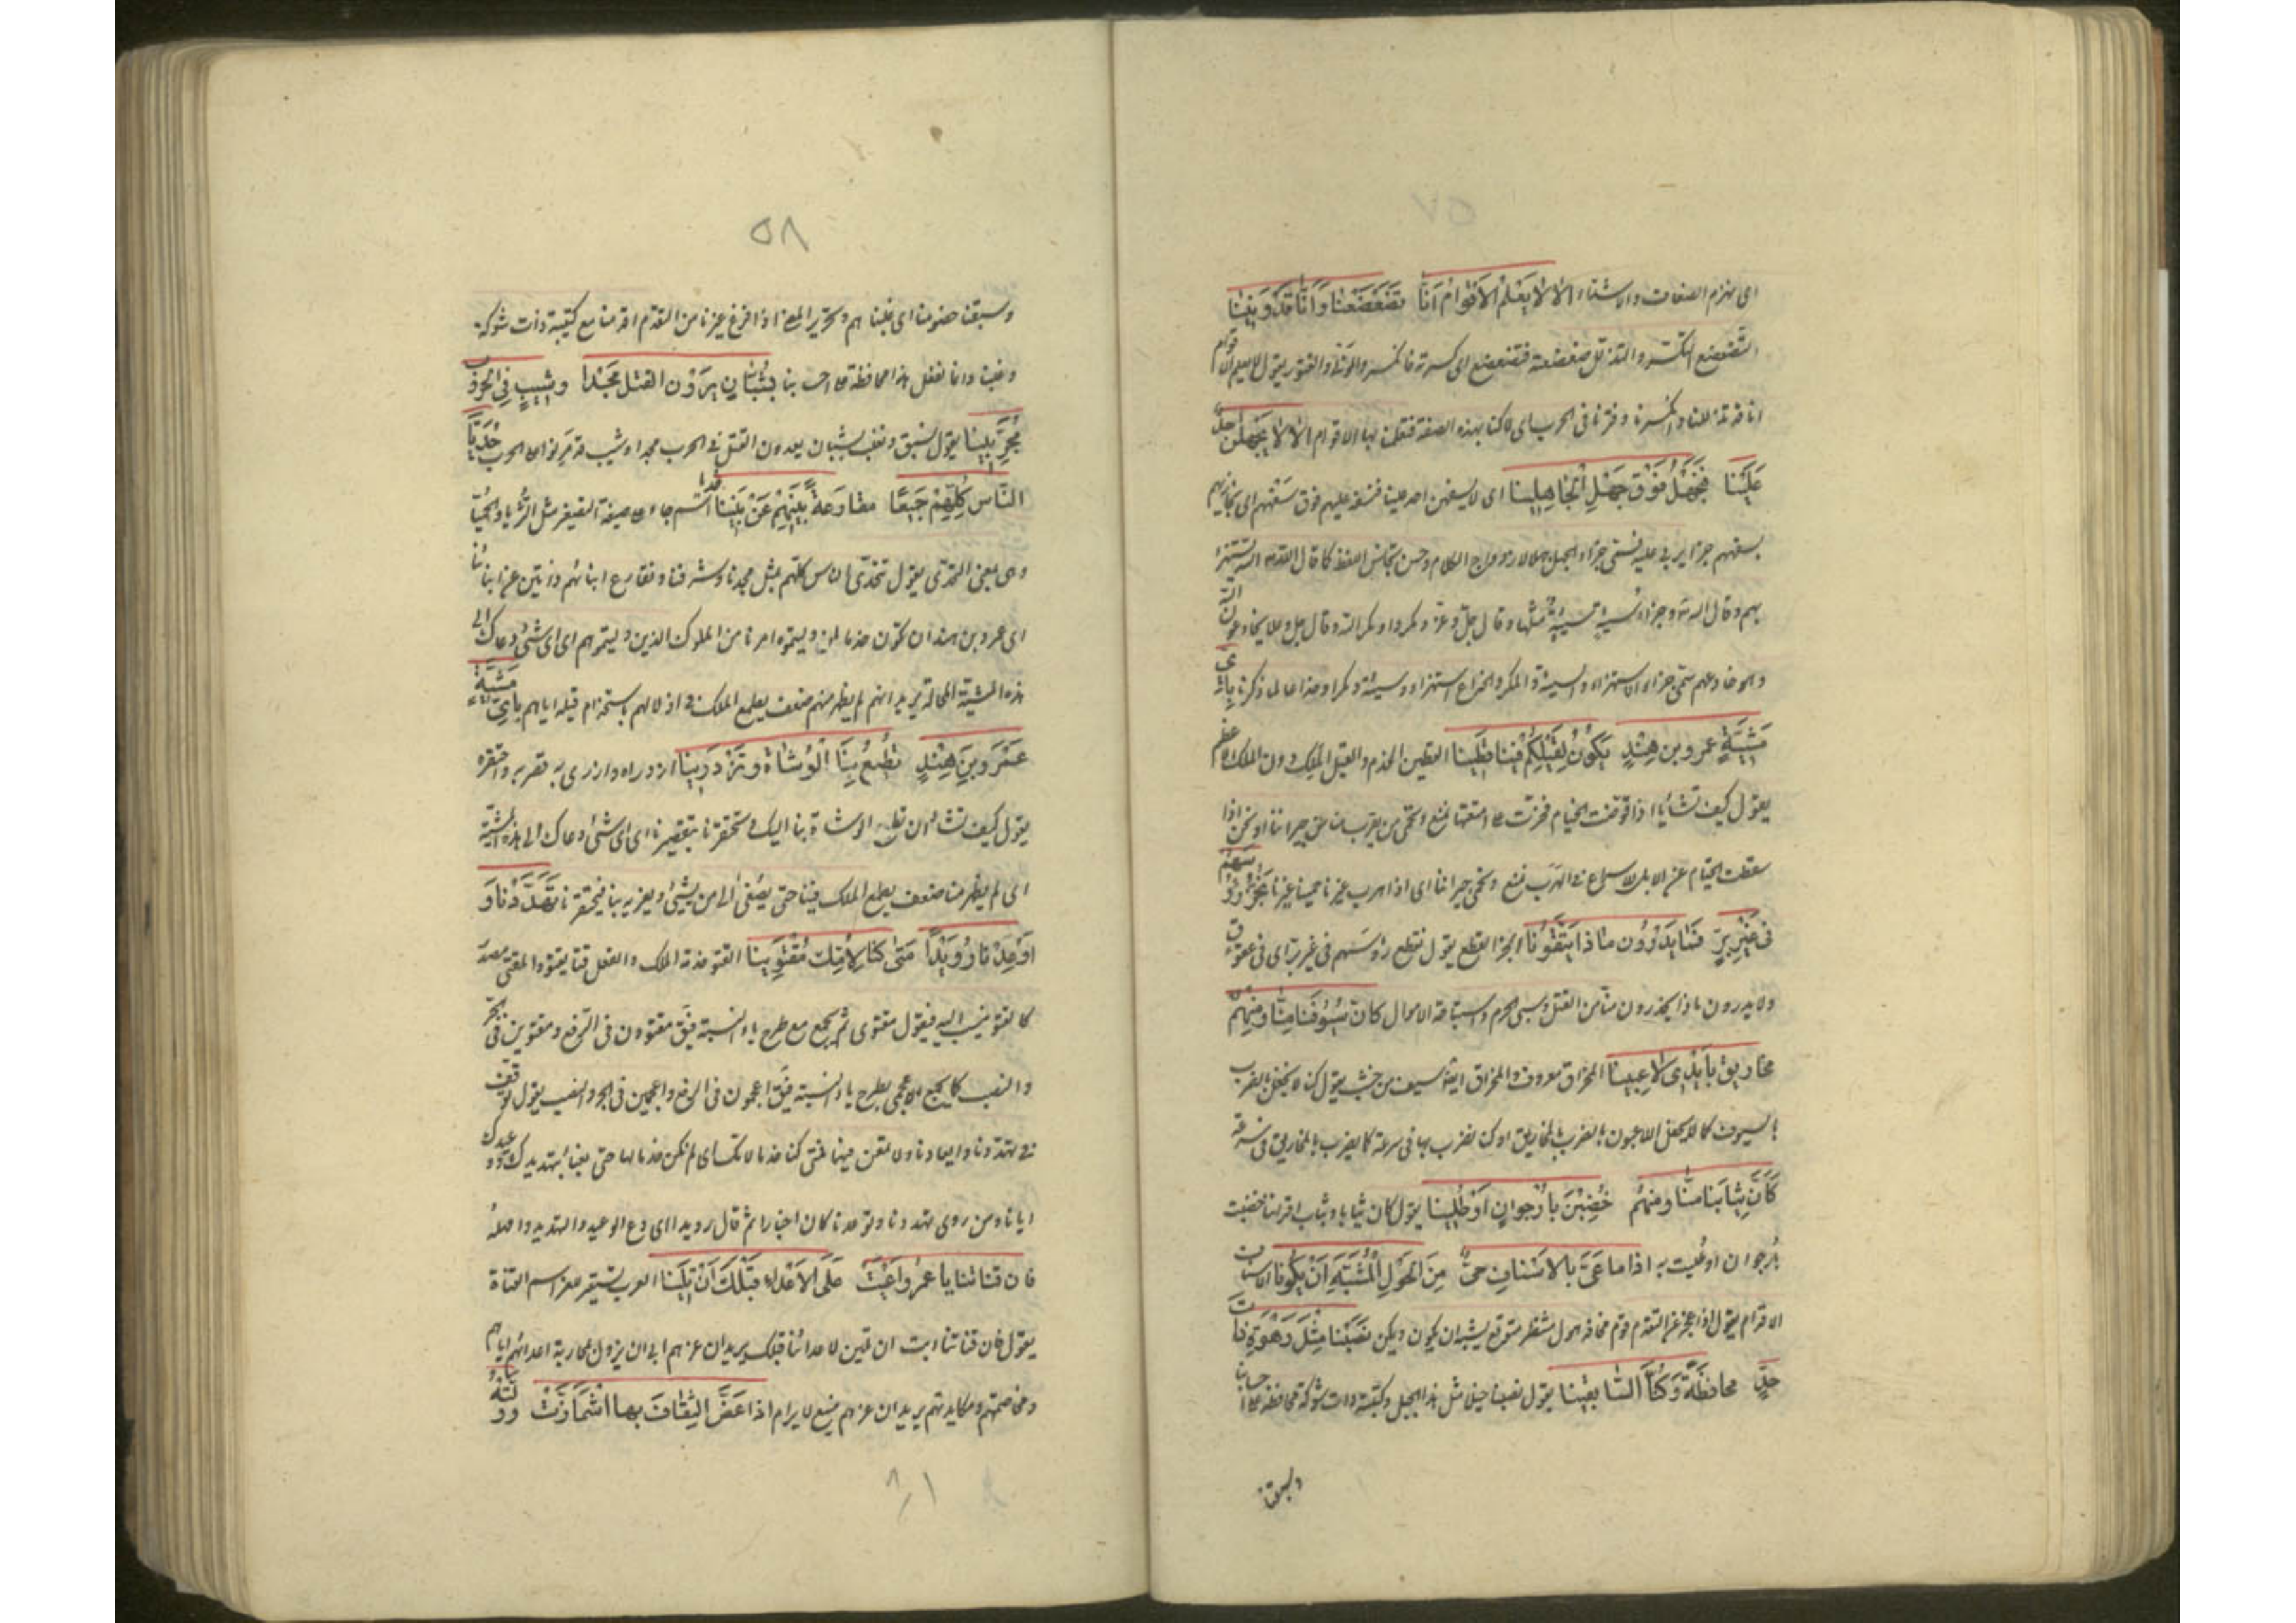 اى بهزام الصفات والاشتاء الا لا يعلم الاَقْوامُ اَنّا تَضَعْضَعْنا وَاَنّا قَدْ وَنَيْنا
التضعضع التكسر والتذلل ضعضعته فتضعضع اى كسرته فانكسر والونى الفتور يقول لا يعلم الاقوام
اننا تذللنا وانكسرنا وفترنا فى الحرب اى لسنا بهذه الصفة فتظن بنا الاقوام الا لا يَجْهَلَنْ احدٌ
عَلَيْنا فَنَجْهَلَ فَوْقَ جَهْلِ الْجاهِلِينا اى لا يسفهن احد علينا فنسفه عليهم فوق سفههم اى نجازيهم
بسفههم جزاء يربى عليه فسمى جزاء الجهل جهلا لازدواج الكلام وحسن تجانس اللفظ كما قال الله تع الله يستهزئ
بهم وقال الله تع وجزاء سيئة سيئة مثلها وقال جل وعز ومكروا ومكر الله وقال جل وعلا يخادعون الله
وهو خادعهم سمى جزاء الاستهزاء والسيئة والمكر والخداع استهزاء وسيئة ومكرا وخداعا لما ذكرنا بِاَىِّ
مَشِيَّةٍ عمرو بن هِنْدٍ نَكُونُ لِقَيْلِكُمْ فِينا قَطِينا القطين الخدم والقيل الملك دون الملك الاعظم
يقول كيف تشاء يا اذا قوضت الخيام فخرت على امتعتها نمنع ونحمى من يقرب منا من جيراننا او نحن اذا
سقطت الخيام عن الابل للاسراع فى الهرب نمنع ونحمى جيراننا اى اذا هرب غيرنا حمينا غيرنا نَجُذُّ رُؤُسَهُمْ
فى غَيْرِ بِرٍّ فَمَا يَدْرُونَ ماذا يَتَّقُونا الجذ القطع يقول نقطع رؤسهم فى غير بر اى فى عقوق
ولا يدرون ماذا يحذرون منا من القتل وسبى الحرم واستباحة الاموال كانَّ سُيُوفَنا مِنّا ومِنْهُمْ
مخاريق بِاَيْدِى لاعِبِينا المخراق معروف والمخراق ايضا سيف من خشب يقول كنا لا نحفل بالضرب
بالسيوف كما لا يحفل اللاعبون بالضرب بالمخاريق او كنا نضرب بها فى سرعة كما يضرب بالمخاريق فى سرعة
كَاَنَّ ثِيابَنا مِنّا ومنهُمْ خُضِبْنَ بِاُرْجُوانٍ اَوْ طُلِينا يقول كان ثيابنا وثياب اقراننا خضبت
بارجوان او طليت به اذا ما عَىَّ بالاسْنافِ حىٌّ مِنَ الهَوْلِ الْمُشَبَّهِ اَنْ يَكُونا الاسناف
الاقدام يقول اذا عجز عن التقدم قوم مخافة هول منتظر متوقع يشبه ان يكون ويمكن نَصَبْنا مِثْلَ رَهْوَةَ ذاتَ
حَدٍّ محافظَةً وَكُنّا السّابِقِينا يقول نصبنا خيلا مثل هذا الجبل وكتيبة ذات شوكة محافظة على احسابنا
وسبقنا
٥٨
وسبقنا خصومنا اى غلبناهم وتحرير المعنى اذا فزع غيرنا من التقدم اقدمنا مع كتيبة ذات شوكة
وغلبنا وانما نفعل هذا محافظة على احسابنا بِشُبّانٍ يَرَوْنَ القتل مَجْداً وشِيبٍ فِى الحروب
مُجَرَّبِينا يقول نسبق ونغلب بشبان يعدون القتل فى الحرب مجدا وشيب قد مرنوا على الحرب حُدَيّا
النّاس كُلِّهِمْ جَمِيعًا مقارَعَةً بَنِيهِمْ عَنْ بَنِينا حديا اسم جاء على صيغة التصغير مثل الثريا والحميا
وهى بمعنى التحدى يقول نتحدى الناس كلهم بمثل مجدنا وشرفنا ونقارع ابناءهم ذابين عن ابنائنا
اى عمرو بن هند ان نكون خدما لمن وليتموه امرنا من الملوك الذين وليتموهم اى اى شئ دعاك الى
هذه المشية المحالة يريد انهم لم يظهر منهم ضعف يطمع الملك فى اذلالهم باستخدام قيله اياهم بِاَىِّ مَشِيَّةٍ
عَمْرَو بْنَ هِنْدٍ تُطِيعُ بِنَا الْوُشاةَ وتَزْدَرِينا ازدراه وازرى به قصر به واحتقره
يقول كيف تشاء ان تطيع الوشاة بنا اليك وتحتقرنا بتقصيرنا اى اى شئ دعاك الى هذه المشية
اى لم يظهر منا ضعف يطمع الملك فينا حتى يصغى الى من يشى ويغريه بنا فيحتقرنا تَهَدَّدْنا وَ
اَوْعِدْنا رُوَيْداً مَتٰى كنّا لِاُمِّكَ مُقْتَوِينا القتو خدمة الملوك والفعل قتا يقتو والمقتى مصدر
كالقتو ينسب اليه فيقول مقتوى ثم يجمع مع طرح ياء النسبة فيق مقتوون فى الرفع ومقتوين فى الجر
والنصب كما يجمع الاعجمى بطرح ياء النسبة فيق اعجمون فى الرفع واعجمين فى الجر والنصب يقول ترفق
فى تهددنا وايعادنا ولا تمعن فيهما فمتى كنا خدما لامك اى لم نكن خدما لها حتى نعبأ بتهديدك ووعيدك
ايانا ومن روى تهددنا وتوعدنا كان اخبارا ثم قال رويدا اى دع الوعيد والتهديد وامهله
فان قناتنا يا عمرُو اَعْيَتْ عَلَى الاَعْداءِ قَبْلَكَ اَنْ تَلِينا العرب تستعير للعز اسم القناة
يقول فان قناتنا ابت ان تلين لاعدائنا قبلك يريد ان عزهم ابى ان يزول بمحاربة اعدائهم اياهم
ومخاصمتهم ومكايدتهم يريد ان عزهم منيع لا يرام اذا عَضَّ الثِّقافُ بها اشْمَأزَّتْ وولته
٨١